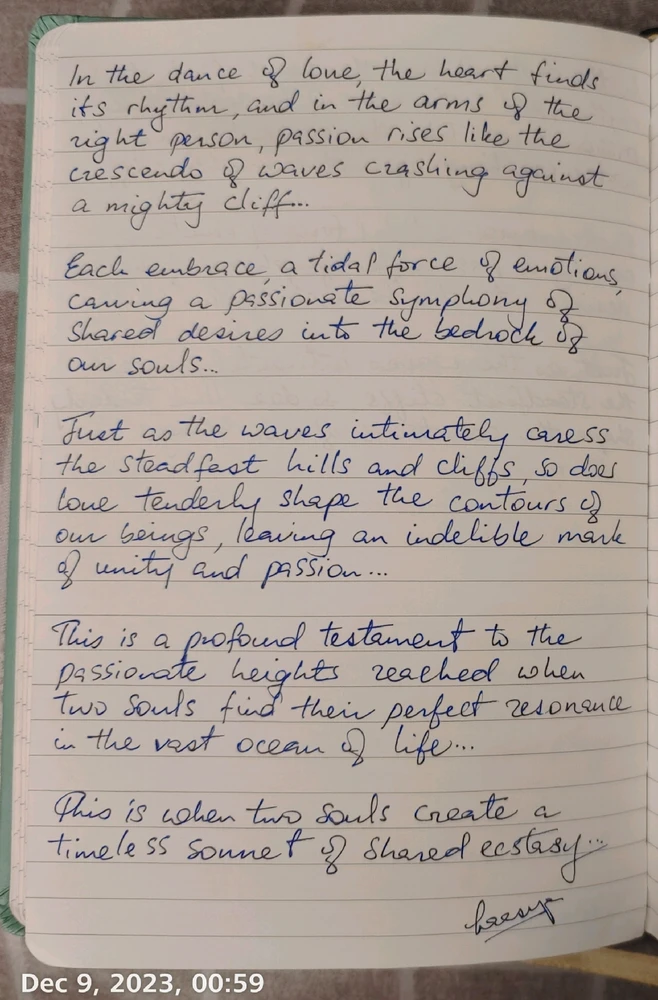 In the dance of love, the heart finds
its rhythm, and in the arms of the
right person, passion rises like the
crescendo of waves crashing against
a mighty cliff...
Each embrace, a tidal force of emotions,
carving a passionate symphony of
shared desires into the bedrock of
our souls...
Just as the waves intimately caress
the steadfast hills and cliffs, so does
love tenderly shape the contours of
our beings, leaving an indelible mark
of unity and passion...
This is a profound testament to the
passionate heights reached when
two souls find their perfect resonance
in the vast ocean of life...
This is when two souls create a
timeless sonnet of shared ecstasy...
Dec 9, 2023, 00:59